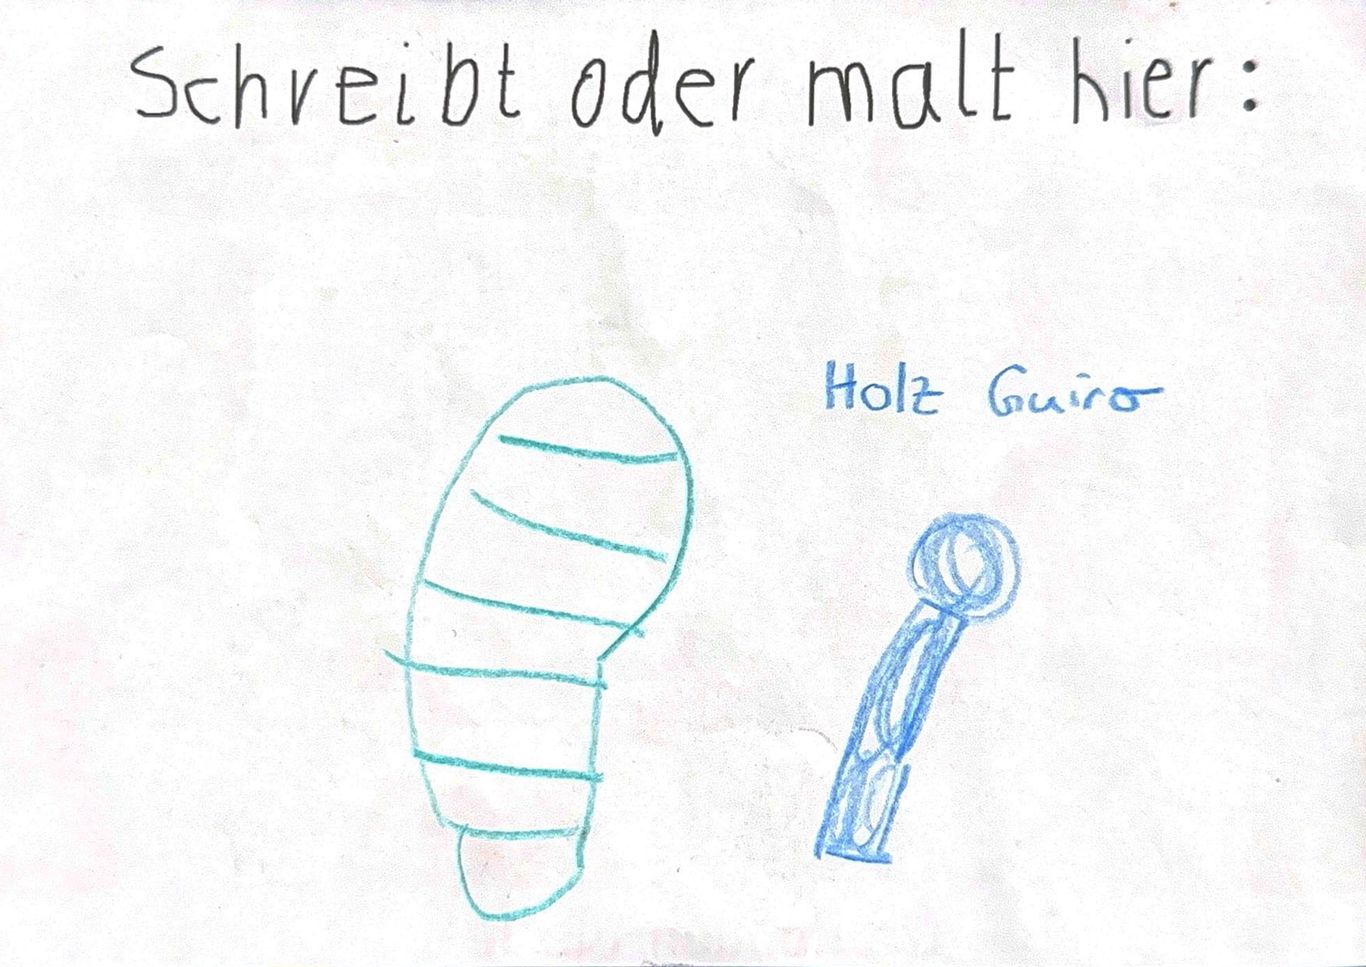 Schreibt oder malt hier:
Holz Guiro